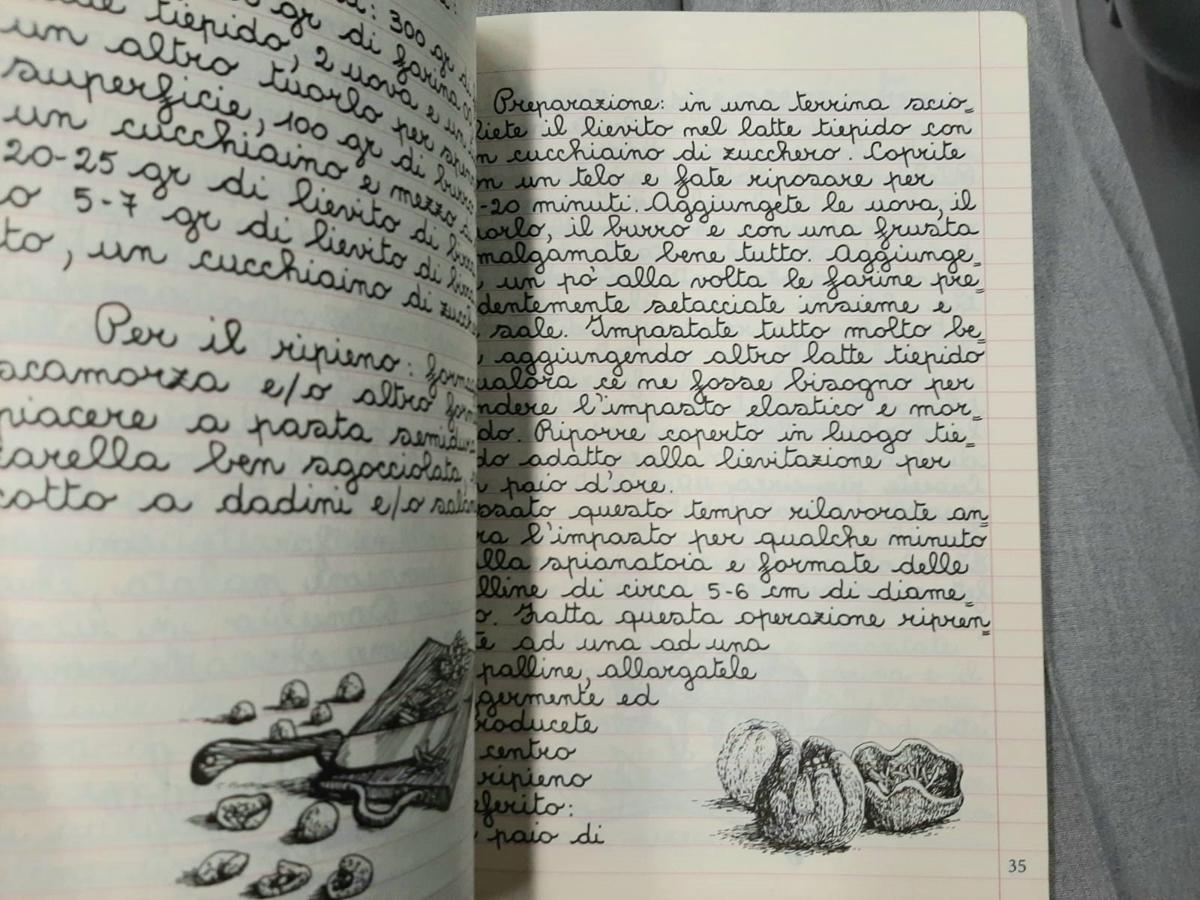 : 300 gr di
gr di farina 0
tiepido, 2 uova e un
un altro tuorlo per
superficie, 100 gr di burro
un cucchiaino e mezzo
20-25 gr di lievito di
o 5-7 gr di lievito di
to, un cucchiaino di
Per il ripieno:
scamorza e/o altro
piacere a pasta
ben sgocciolata,
cotto a dadini e/o
Preparazione: in una terrina scio=
liete il lievito nel latte tiepido con
n cucchiaino di zucchero. Coprite
un telo e fate riposare per
-20 minuti. Aggiungete le uova, il
uorlo, il burro e con una frusta
malgamate bene tutto. Aggiunge=
un pò alla volta le farine pre=
dentemente setacciate insieme e
sale. Impastate tutto molto be=
aggiungendo altro latte tiepido
ualora ce ne fosse bisogno per
ndere l'impasto elastico e mor=
do. Riporre coperto in luogo tie=
do adatto alla lievitazione per
paio d'ore.
ssato questo tempo rilavorate an=
ra l'impasto per qualche minuto
lla spianatoia e formate delle
lline di circa 5-6 cm di diame=
o. Fatta questa operazione ripren=
te ad una ad una
palline, allargatele
germente ed
roducete
centro
ripieno
eferito:
paio di
35